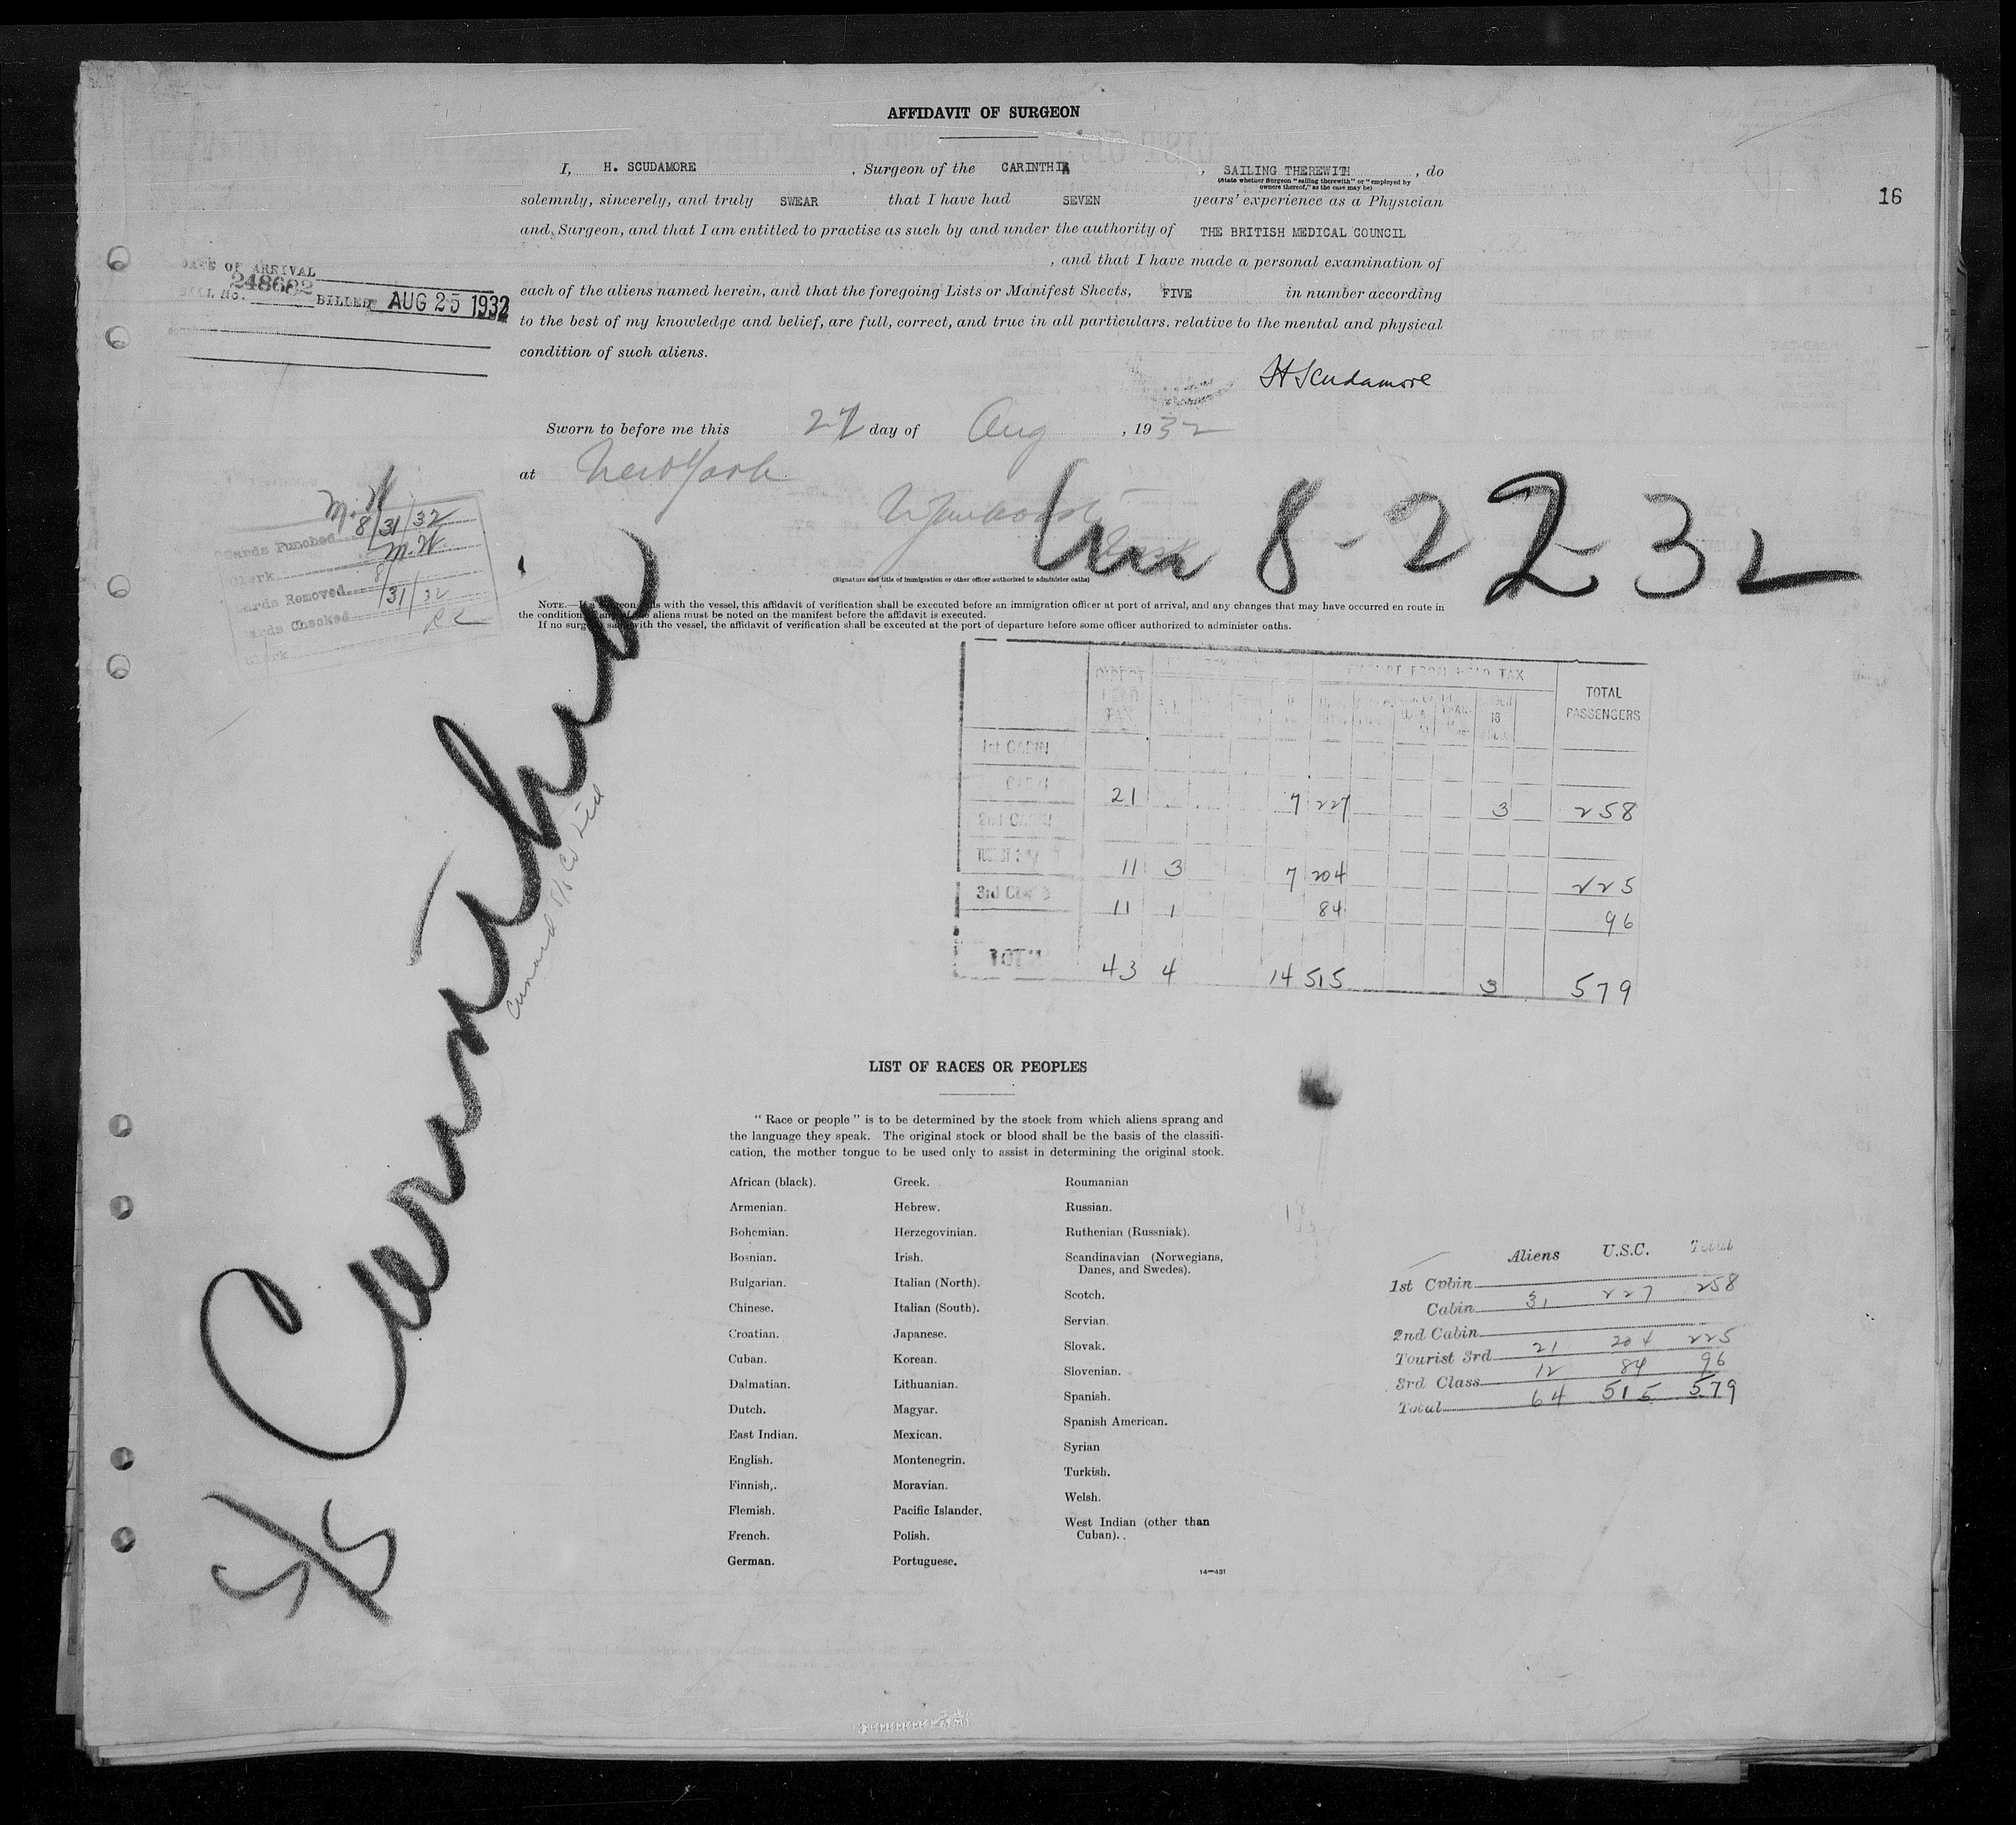 AFFIDAVIT OF SURGEON
16
I, H. SCUDAMORE, Surgeon of the CARINTHIA, SAILING THEREWITH, do
(State whether Surgeon "sailing therewith" or "employed by
owners thereof," as the case may be)
solemnly, sincerely, and truly SWEAR that I have had SEVEN years' experience as a Physician
and Surgeon, and that I am entitled to practise as such by and under the authority of THE BRITISH MEDICAL COUNCIL
, and that I have made a personal examination of
each of the aliens named herein, and that the foregoing Lists or Manifest Sheets, FIVE in number according
to the best of my knowledge and belief, are full, correct, and true in all particulars. relative to the mental and physical
condition of such aliens.
DATE OF ARRIVAL
BILL No. 248682 BILLED AUG 25 1932
H Scudamore
Sworn to before me this day of Aug, 1932
at New York
8-22-32
(Signature and title of immigration or other officer authorized to administer oaths)
M.W.
Cards Punched 8/31/32
Clerk M.W.
Cards Removed 8/31/32
Cards Checked
Clerk
NOTE.—If a surgeon sails with the vessel, this affidavit of verification shall be executed before an immigration officer at port of arrival, and any changes that may have occurred en route in
the condition of any of the aliens must be noted on the manifest before the affidavit is executed.
If no surgeon sails with the vessel, the affidavit of verification shall be executed at the port of departure before some officer authorized to administer oaths.
S/S Carinthia
Cunard S/S Co Ltd
DIRECT HEAD TAX EXEMPT FROM HEAD TAX TOTAL PASSENGERS
UNDER 16
1st CABIN
CABIN 21 7 227 3 258
2nd CABIN
TOURIST 3rd 11 3 7 204 225
3rd CLASS 11 1 84 96
TOTAL 43 4 14 515 3 579
LIST OF RACES OR PEOPLES
"Race or people" is to be determined by the stock from which aliens sprang and
the language they speak. The original stock or blood shall be the basis of the classifi-
cation, the mother tongue to be used only to assist in determining the original stock.
African (black).
Armenian.
Bohemian.
Bosnian.
Bulgarian.
Chinese.
Croatian.
Cuban.
Dalmatian.
Dutch.
East Indian.
English.
Finnish,.
Flemish.
French.
German.
Greek.
Hebrew.
Herzegovinian.
Irish.
Italian (North).
Italian (South).
Japanese.
Korean.
Lithuanian.
Magyar.
Mexican.
Montenegrin.
Moravian.
Pacific Islander.
Polish.
Portuguese.
Roumanian
Russian.
Ruthenian (Russniak).
Scandinavian (Norwegians,
Danes, and Swedes).
Scotch.
Servian.
Slovak.
Slovenian.
Spanish.
Spanish American.
Syrian
Turkish.
Welsh.
West Indian (other than
Cuban).
14—431
Aliens U.S.C. Total
1st Cabin
Cabin 31 227 258
2nd Cabin
Tourist 3rd 21 204 225
3rd Class 12 84 96
Total 64 515 579